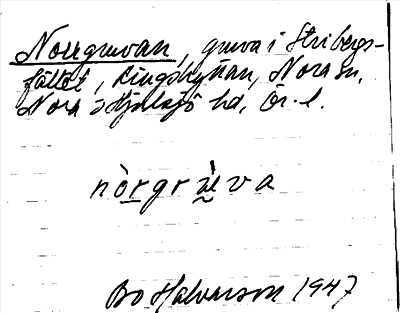 Norrgruvan, gruva i Stribergs-
fältet, Ringshyttan, Nora sn,
Nora o Hjulsjö hd, Ör. l.
nòrgrùva
Bo Halvarson 1947